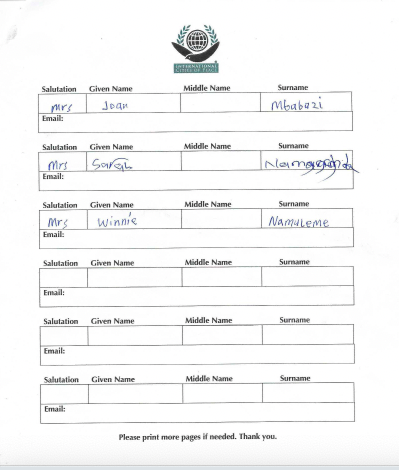 INTERNATIONAL
CITIES OF PEACE
Salutation Given Name Middle Name Surname
Mrs Joan Mbabazi
Email:
Salutation Given Name Middle Name Surname
Mrs Sarah
Email:
Salutation Given Name Middle Name Surname
Mrs Winnie Namuleme
Email:
Salutation Given Name Middle Name Surname
Email:
Salutation Given Name Middle Name Surname
Email:
Salutation Given Name Middle Name Surname
Email:
Please print more pages if needed. Thank you.